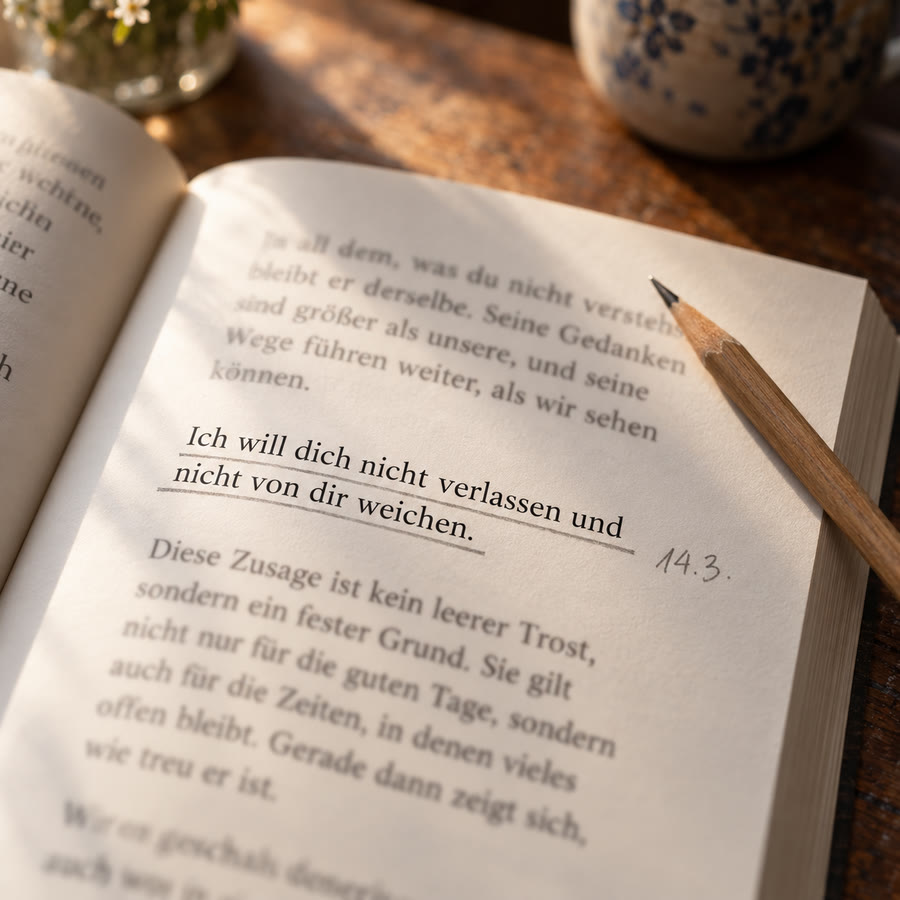 wehtne,
ier
ne
h
In all dem, was du nicht verstehs
bleibt er derselbe. Seine Gedanken
sind größer als unsere, und seine
Wege führen weiter, als wir sehen
können.
Ich will dich nicht verlassen und
nicht von dir weichen.
14.3.
Diese Zusage ist kein leerer Trost,
sondern ein fester Grund. Sie gilt
nicht nur für die guten Tage, sondern
auch für die Zeiten, in denen vieles
offen bleibt. Gerade dann zeigt sich,
wie treu er ist.